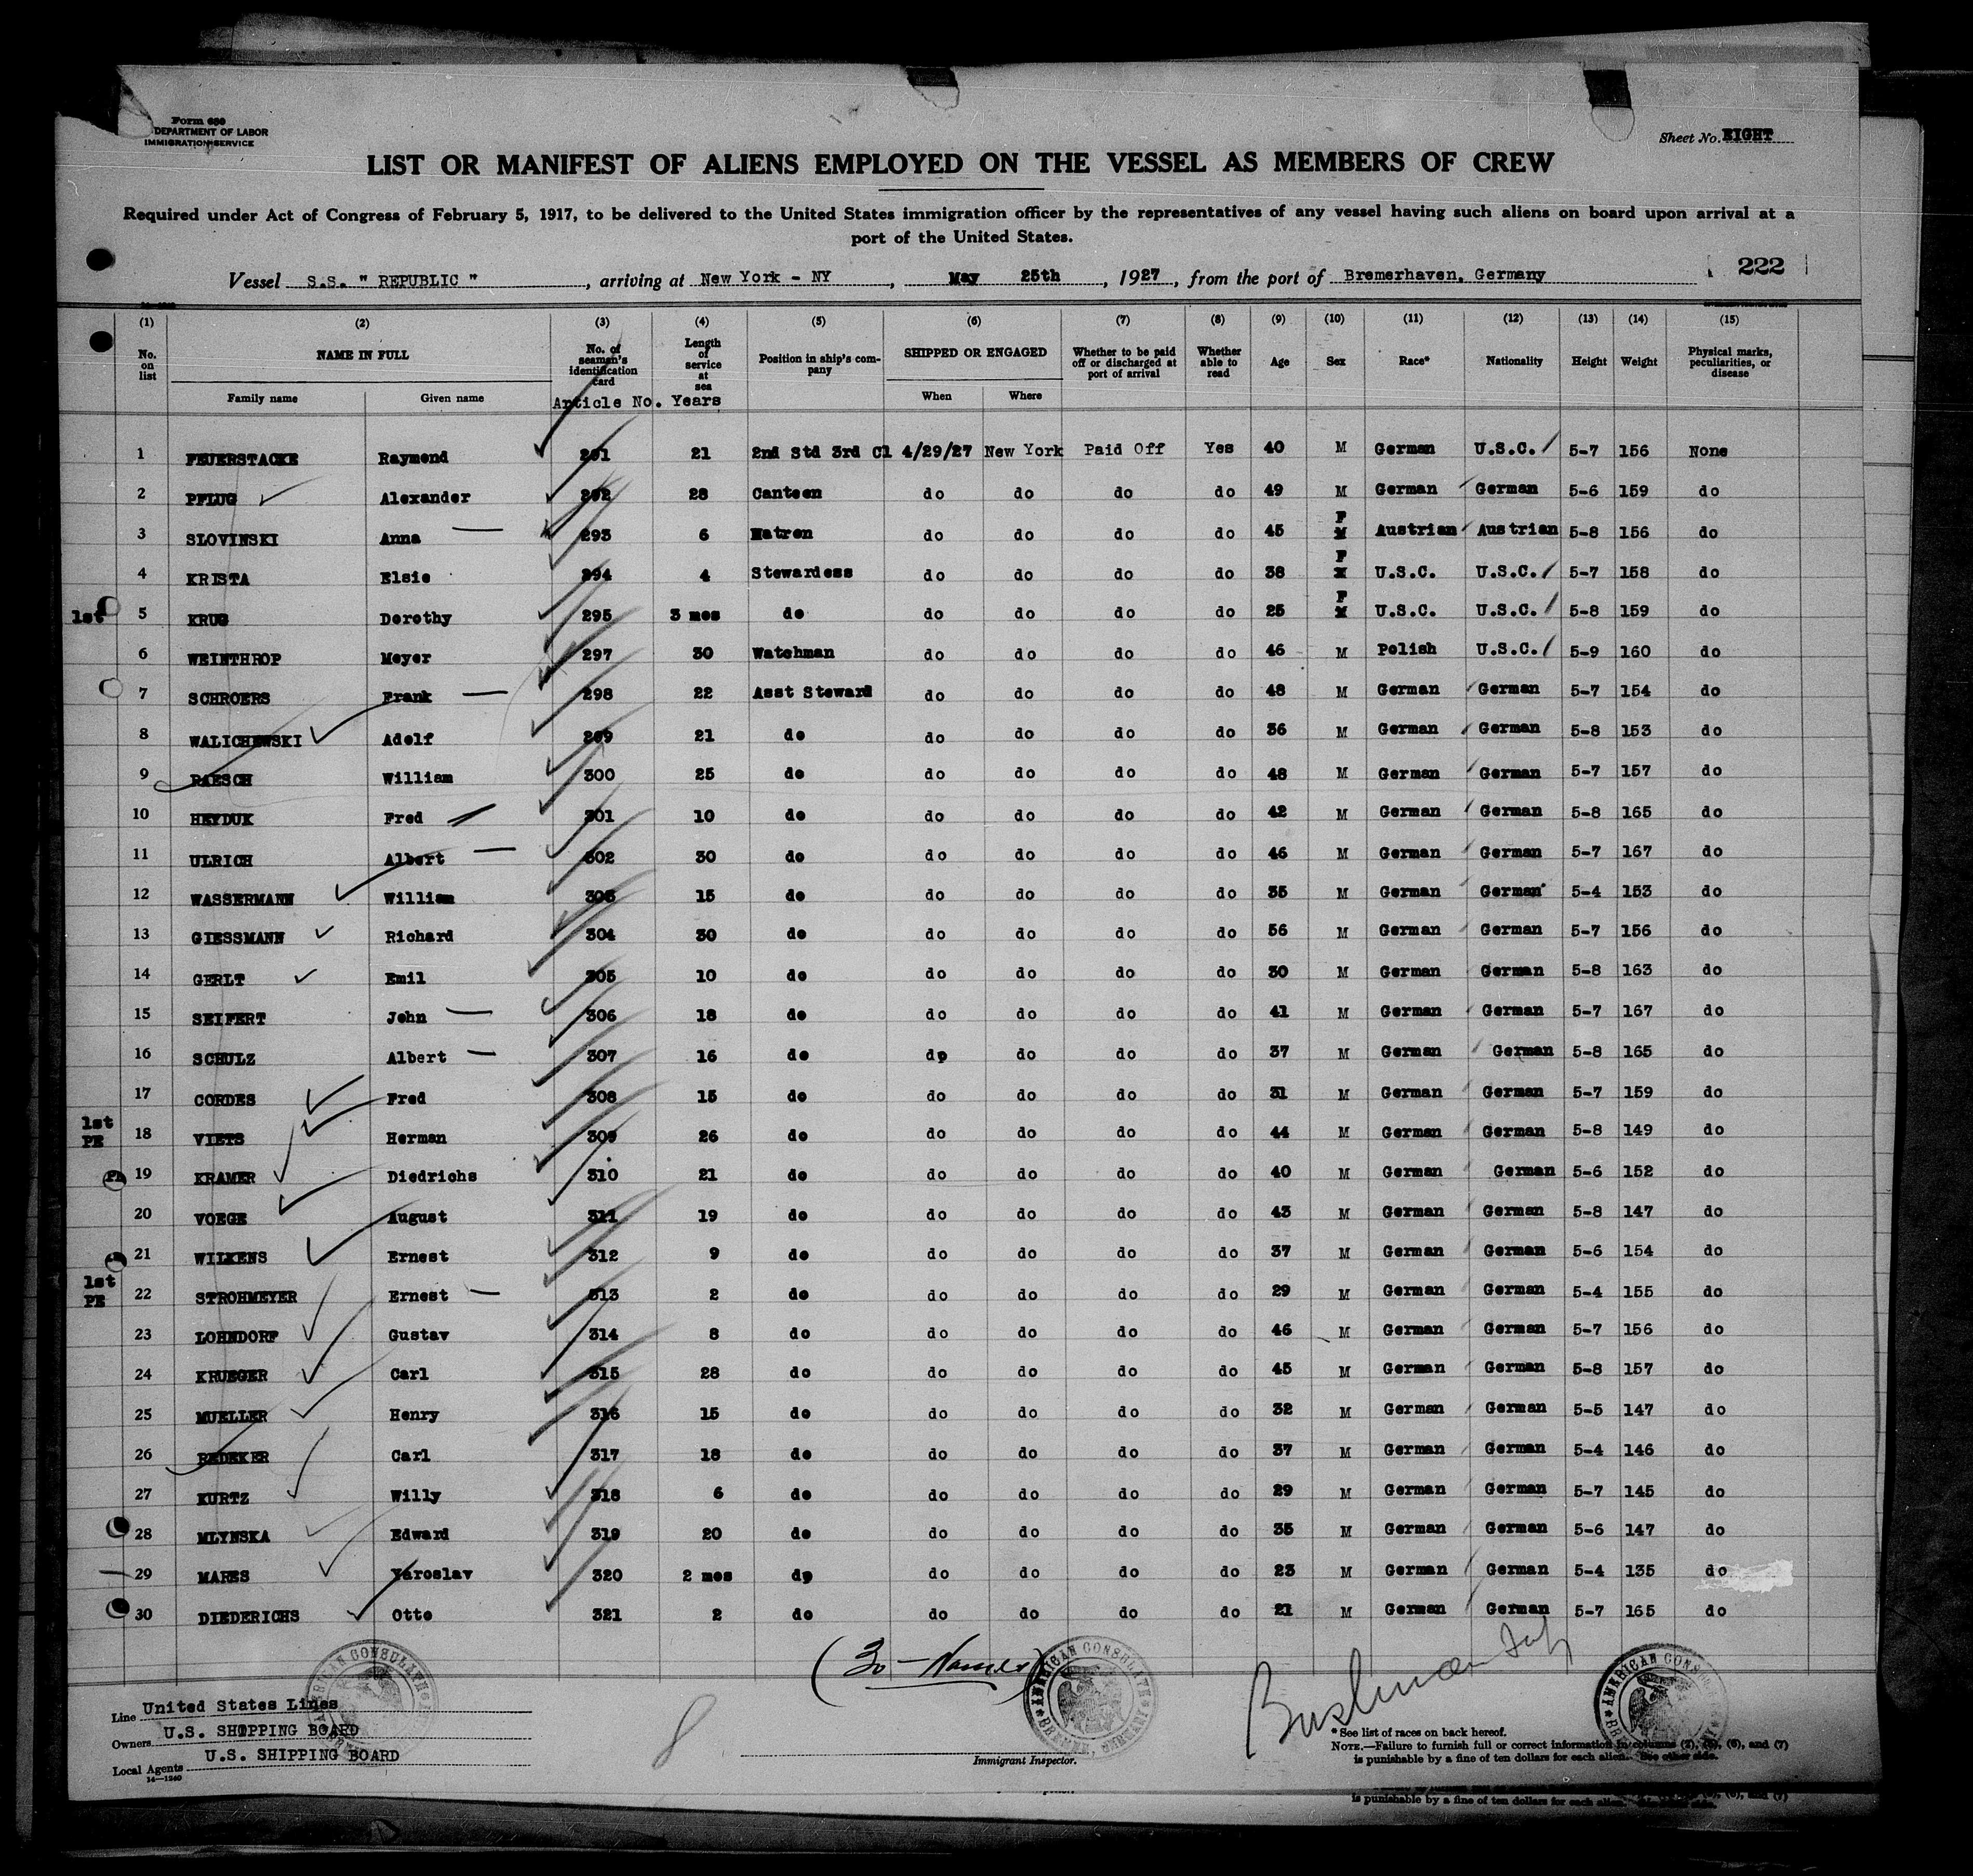 Form 680
DEPARTMENT OF LABOR
IMMIGRATION SERVICE
Sheet No. EIGHT
LIST OR MANIFEST OF ALIENS EMPLOYED ON THE VESSEL AS MEMBERS OF CREW
Required under Act of Congress of February 5, 1917, to be delivered to the United States immigration officer by the representatives of any vessel having such aliens on board upon arrival at a
port of the United States.
Vessel S.S. " REPUBLIC ", arriving at New York - NY, May 25th, 1927, from the port of Bremerhaven, Germany
222
(1) (2) (3) (4) (5) (6) (7) (8) (9) (10) (11) (12) (13) (14) (15)
No. on list NAME IN FULL No. of seaman's identification card Length of service at sea Position in ship's company SHIPPED OR ENGAGED Whether to be paid off or discharged at port of arrival Whether able to read Age Sex Race* Nationality Height Weight Physical marks, peculiarities, or disease
Family name Given name Article No. Years When Where
1 FEUERSTACKE Raymond 291 21 2nd Std 3rd Cl 4/29/27 New York Paid Off Yes 40 M German U.S.C. 5-7 156 None
2 PFLUG Alexander 292 28 Canteen do do do do 49 M German German 5-6 159 do
3 SLOVINSKI Anna 293 6 Matron do do do do 45 F M Austrian Austrian 5-8 156 do
4 KRISTA Elsie 294 4 Stewardess do do do do 38 F M U.S.C. U.S.C. 5-7 158 do
1st 5 KRUG Dorothy 295 3 mos do do do do do 25 F M U.S.C. U.S.C. 5-8 159 do
6 WEINTHROP Meyer 297 30 Watchman do do do do 46 M Polish U.S.C. 5-9 160 do
7 SCHROERS Frank 298 22 Asst Steward do do do do 48 M German German 5-7 154 do
8 WALICHEWSKI Adolf 299 21 do do do do do 36 M German German 5-8 153 do
9 RAESCH William 300 25 do do do do do 48 M German German 5-7 157 do
10 HEYDUK Fred 301 10 do do do do do 42 M German German 5-8 165 do
11 ULRICH Albert 302 30 do do do do do 46 M German German 5-7 167 do
12 WASSERMANN William 303 15 do do do do do 35 M German German 5-4 153 do
13 GIESSMANN Richard 304 30 do do do do do 56 M German German 5-7 156 do
14 GERLT Emil 305 10 do do do do do 30 M German German 5-8 163 do
15 SEIFERT John 306 18 do do do do do 41 M German German 5-7 167 do
16 SCHULZ Albert 307 16 do dp do do do 37 M German German 5-8 165 do
17 CORDES Fred 308 15 do do do do do 31 M German German 5-7 159 do
1st PE 18 VIETS Herman 309 26 do do do do do 44 M German German 5-8 149 do
19 KRAMER Diedrichs 310 21 do do do do do 40 M German German 5-6 152 do
20 VOEGE August 311 19 do do do do do 43 M German German 5-8 147 do
21 WILKENS Ernest 312 9 do do do do do 37 M German German 5-6 154 do
1st PE 22 STROHMEYER Ernest 313 2 do do do do do 29 M German German 5-4 155 do
23 LOHNDORF Gustav 314 8 do do do do do 46 M German German 5-7 156 do
24 KRUEGER Carl 315 28 do do do do do 45 M German German 5-8 157 do
25 MUELLER Henry 316 15 do do do do do 32 M German German 5-5 147 do
26 REDEKER Carl 317 18 do do do do do 37 M German German 5-4 146 do
27 KURTZ Willy 318 6 do do do do do 29 M German German 5-7 145 do
28 MLYNSKA Edward 319 20 do do do do do 35 M German German 5-6 147 do
29 MARES Yaroslav 320 2 mos dp do do do do 23 M German German 5-4 135 do
30 DIEDERICHS Otto 321 2 do do do do do 21 M German German 5-7 165 do
(30 - Names)
AMERICAN CONSULATE
Line United States Lines
Owners U.S. SHIPPING BOARD
Local Agents U.S. SHIPPING BOARD
14-1240
8
Immigrant Inspector.
* See list of races on back hereof.
NOTE.—Failure to furnish full or correct information in columns (2), (5), (6), and (7)
is punishable by a fine of ten dollars for each alien. See other side.
is punishable by a fine of ten dollars for each alien.